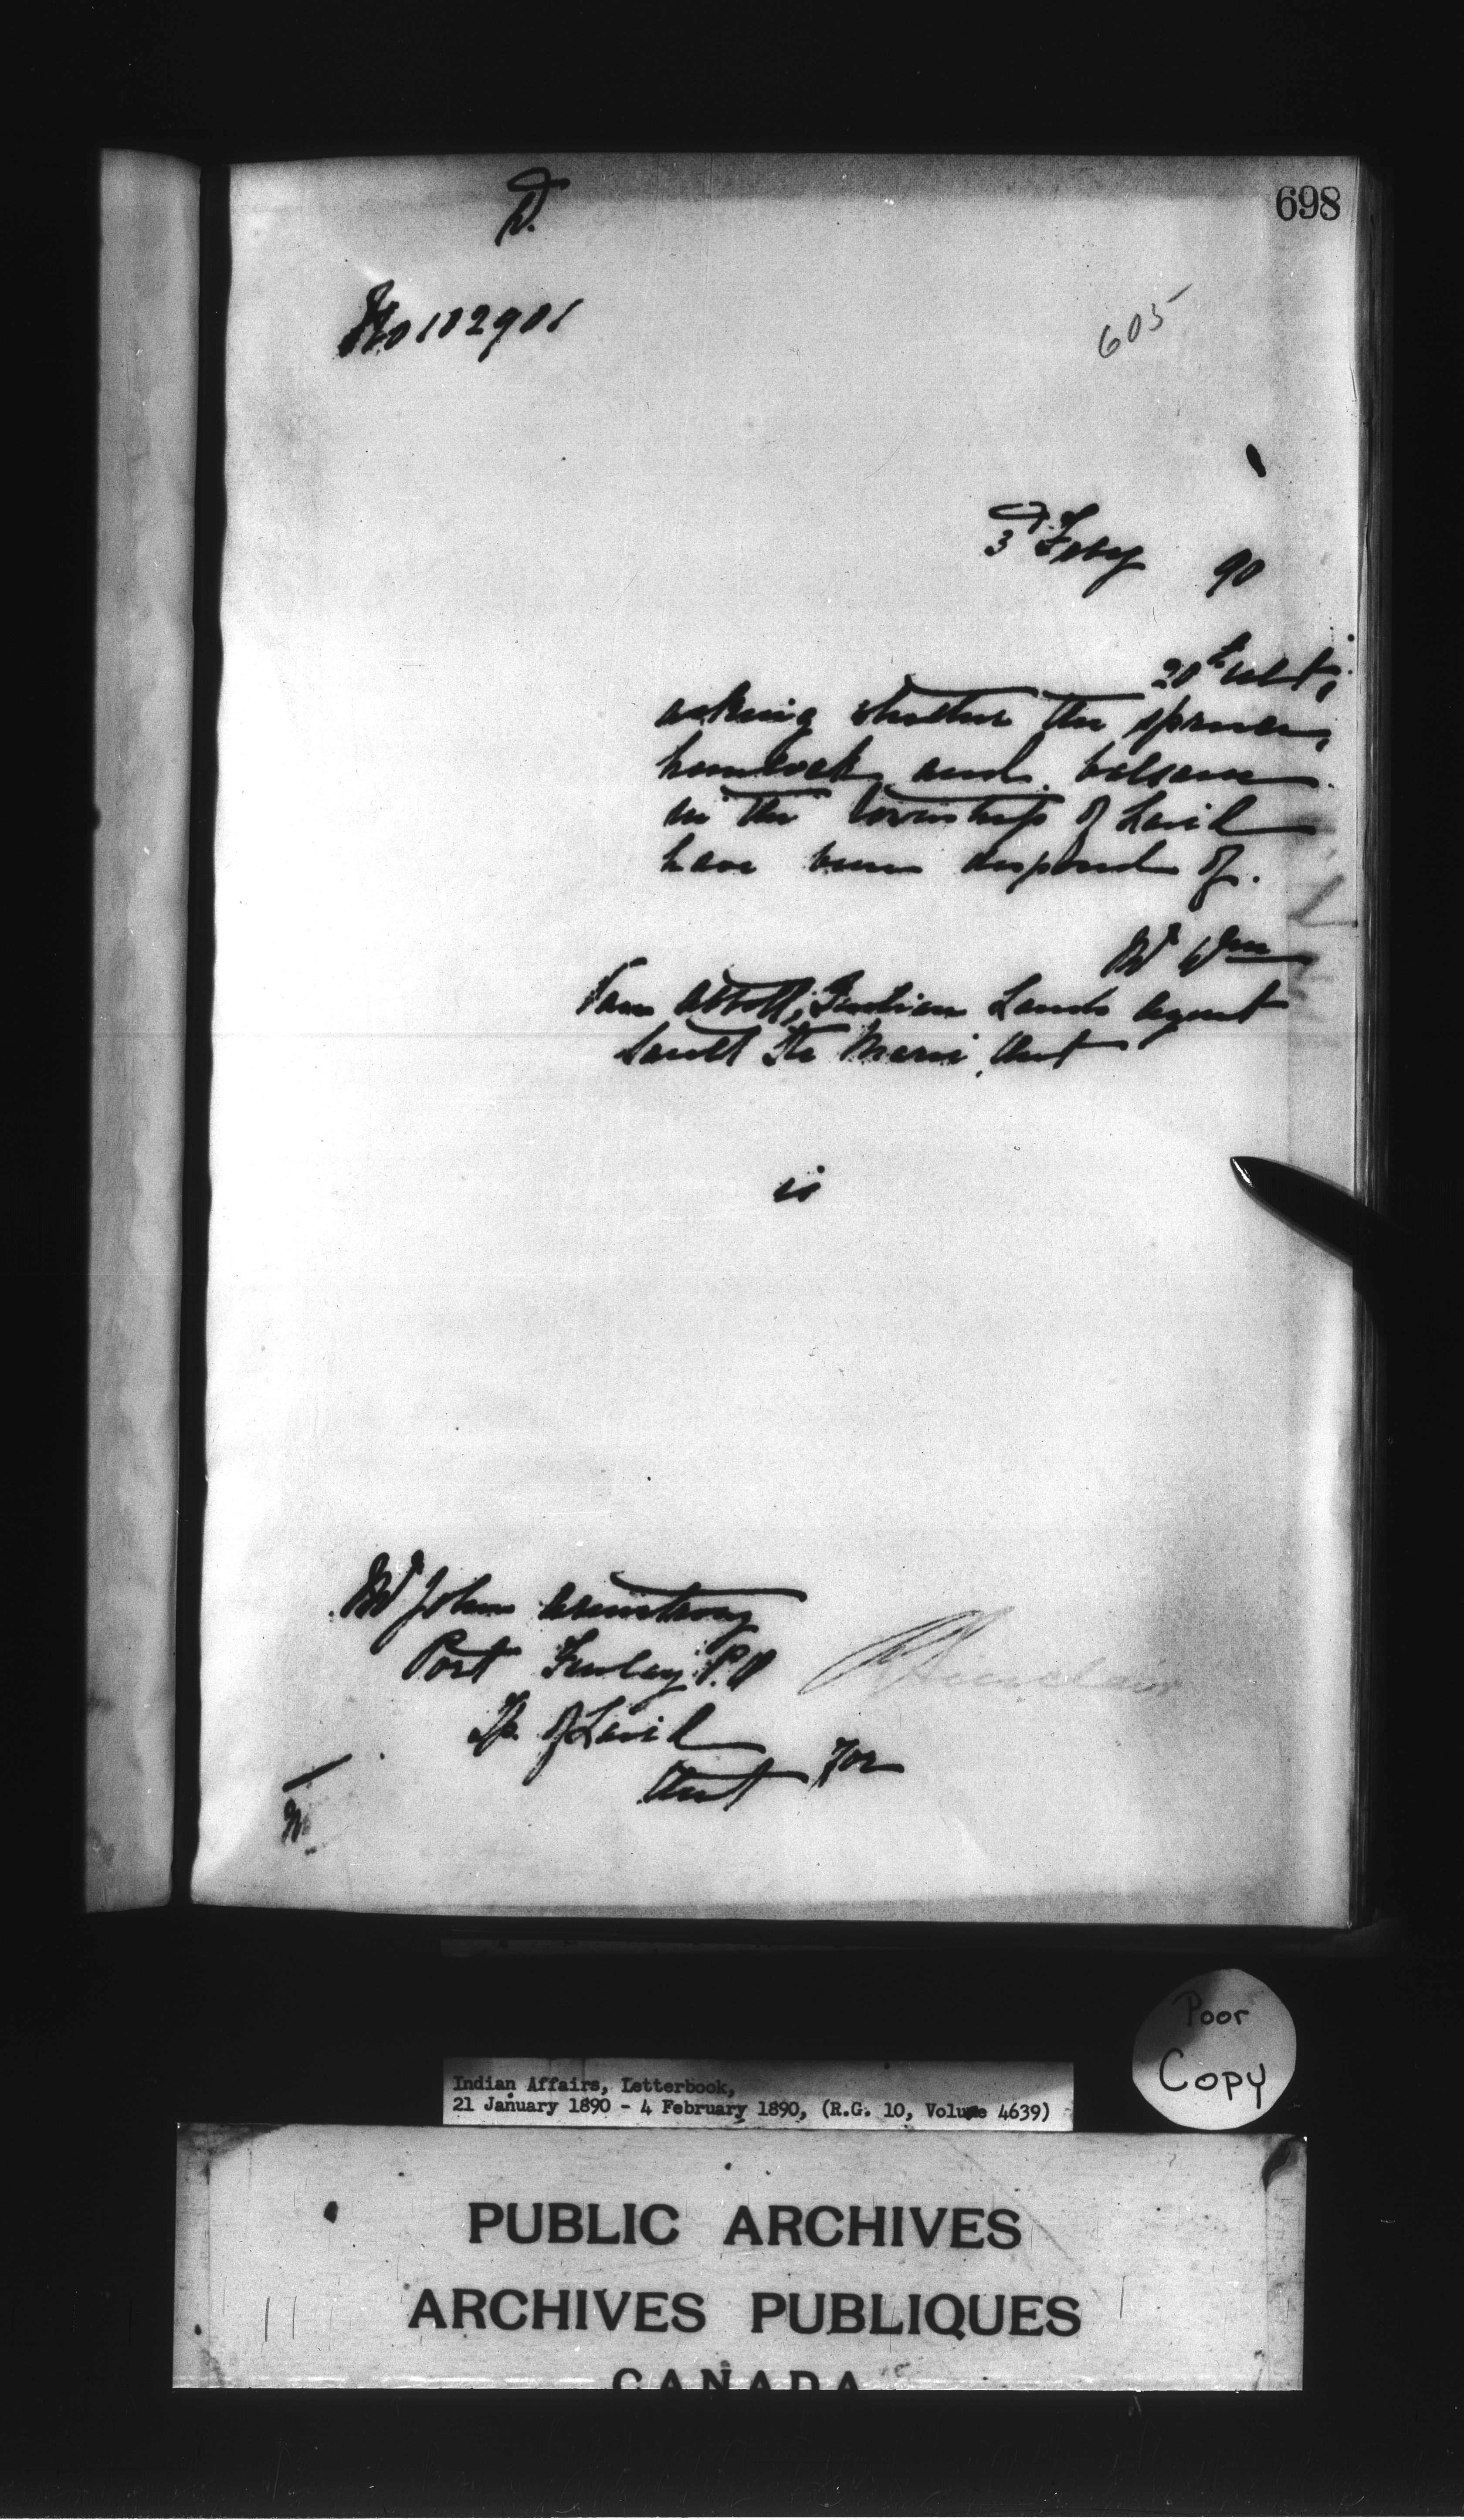 698
D.
No 102901
605
3d Feby 90
20th ult,
asking whether the spruce,
hemlock and balsam
in the township of Laird
have been disposed of.
Mr Wm
Van Abbott, Indian Lands Agent
Sault Ste Marie, Ont
is
Mr John Armstrong
Port Finlay P.O
Tp. of Laird
Ont
Sinclair
for
Poor
Copy
Indian Affairs, Letterbook,
21 January 1890 - 4 February 1890, (R.G. 10, Volume 4639)
PUBLIC ARCHIVES
ARCHIVES PUBLIQUES
CANADA